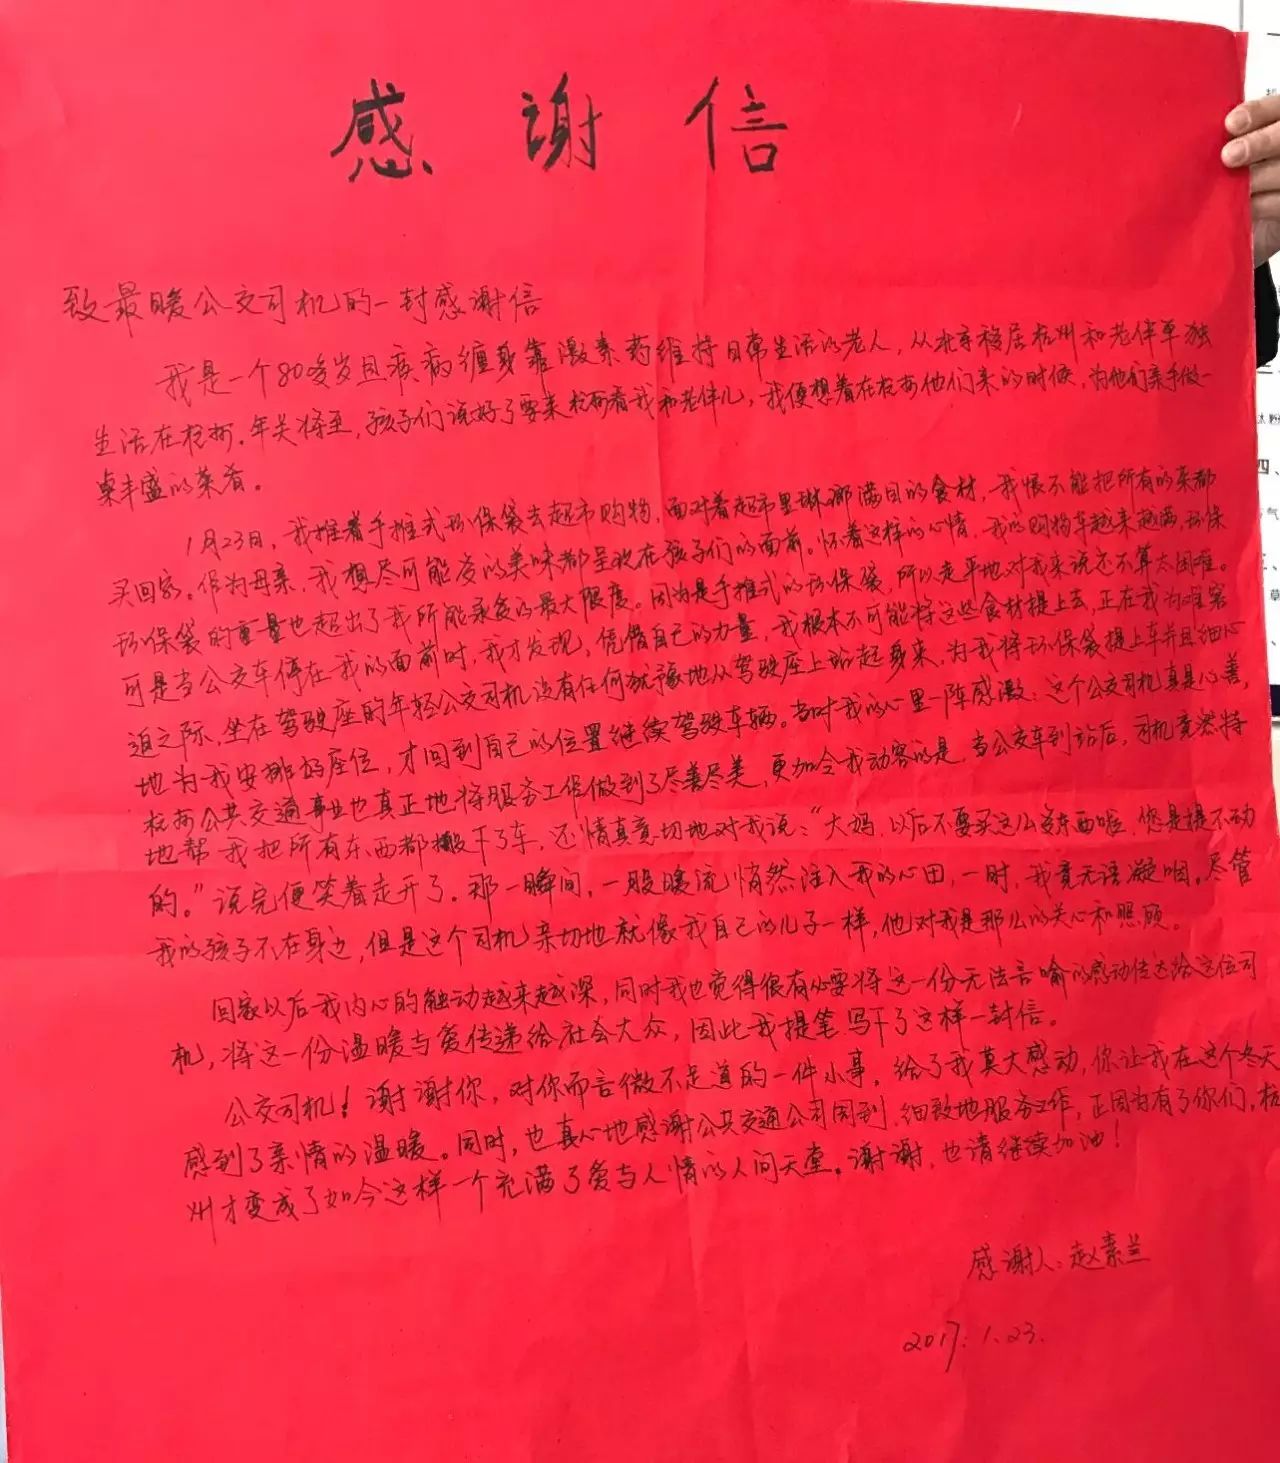 感谢信
致最暖公交司机的一封感谢信
我是一个80多岁且疾病缠身靠激素药维持日常生活的老人，从北京移居杭州和老伴单独
生活在杭州。年关将至，孩子们说好了要来杭州看我和老伴儿，我便想着在杭州他们来的时候，为他们亲手做一
桌丰盛的菜肴。
1月23日，我推着手推式环保袋去超市购物，面对着超市里琳琅满目的食材，我恨不能把所有的菜都
买回家。作为母亲，我想尽可能多的美味都呈现在孩子们的面前。怀着这样的心情，我的购物车越来越满，环保
环保袋的重量也超出了我所能承受的最大限度。因为是手推式的环保袋，所以走平地对我来说还不算太困难。
可是当公交车停在我的面前时，我才发现，凭借自己的力量，我根本不可能将这些食材提上去，正在我为难窘
迫之际，坐在驾驶座的年轻公交司机没有任何犹豫地从驾驶座上站起身来，为我将环保袋提上车并且细心
地为我安排好座位，才回到自己的位置继续驾驶车辆。当时我的心里一阵感激：这个公交司机真是心善，
杭州公共交通事业也真正地将服务工作做到了尽善尽美，更加令我动容的是，当公交车到站后，司机竟然特
地帮我把所有东西都搬下了车，还情真意切地对我说：“大妈，以后不要买这么多东西啦，您是提不动
的。”说完便笑着走开了。那一瞬间，一股暖流悄然注入我的心田，一时，我竟无语凝咽。尽管
我的孩子不在身边，但是这个司机亲切地就像我自己的儿子一样，他对我是那么的关心和照顾。
回家以后我内心的触动越来越深，同时我也觉得很有必要将这一份无法言喻的感动传达给这位司
机，将这一份温暖与爱传递给社会大众，因此我提笔写下了这样一封信。
公交司机！谢谢你，对你而言微不足道的一件小事，给了我莫大感动，你让我在这个冬天
感到了亲情的温暖。同时，也真心地感谢公共交通公司周到，细致地服务工作，正因为有了你们，杭
州才变成了如今这样一个充满了爱与人情的人间天堂。谢谢，也请继续加油！
感谢人：赵素兰
2017.1.23.
四、